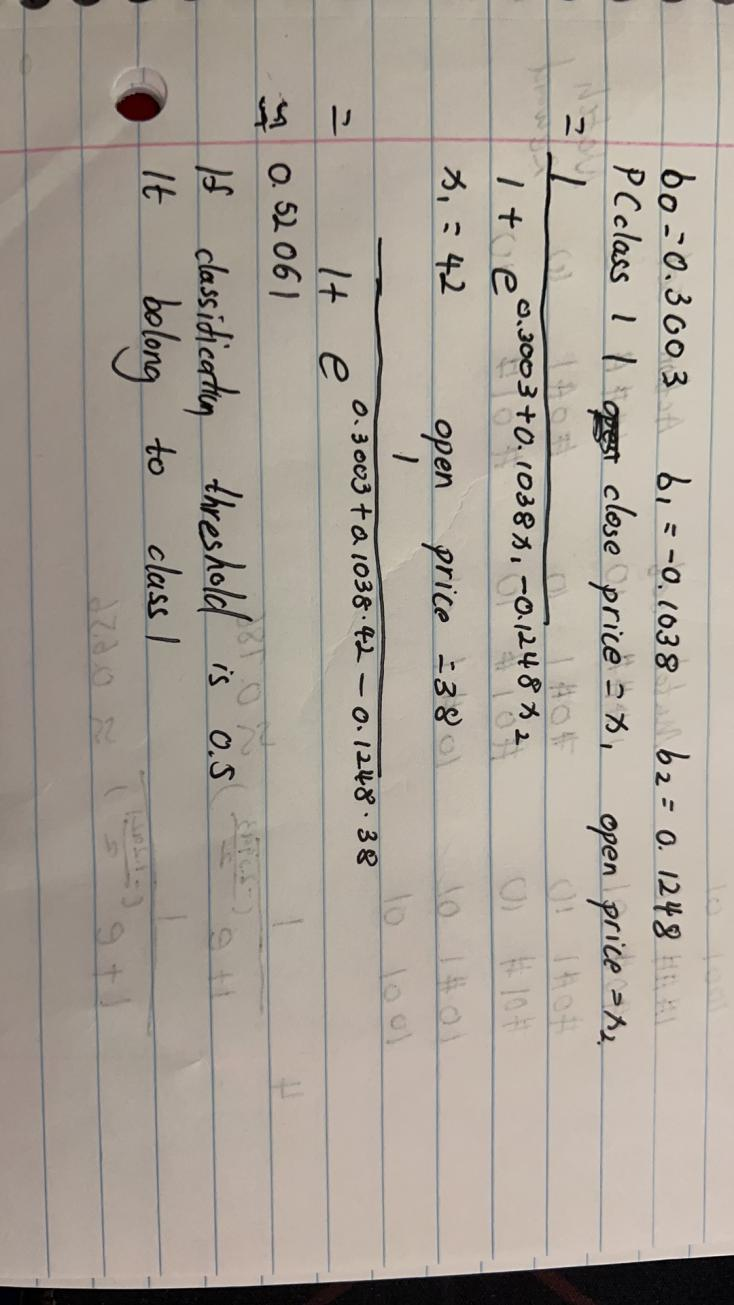 b0 = 0.3003 b1 = -0.1038 b2 = 0.1248
P(class 1 | close price = x1 open price = x2
= 1
1 + e^0.3003+0.1038x1-0.1248x2
x1 = 42 open price = 38
1
= 1+ e^0.3003+0.1038·42-0.1248·38
≈ 0.52061
If classidication threshold is 0.5
It bolong to class 1